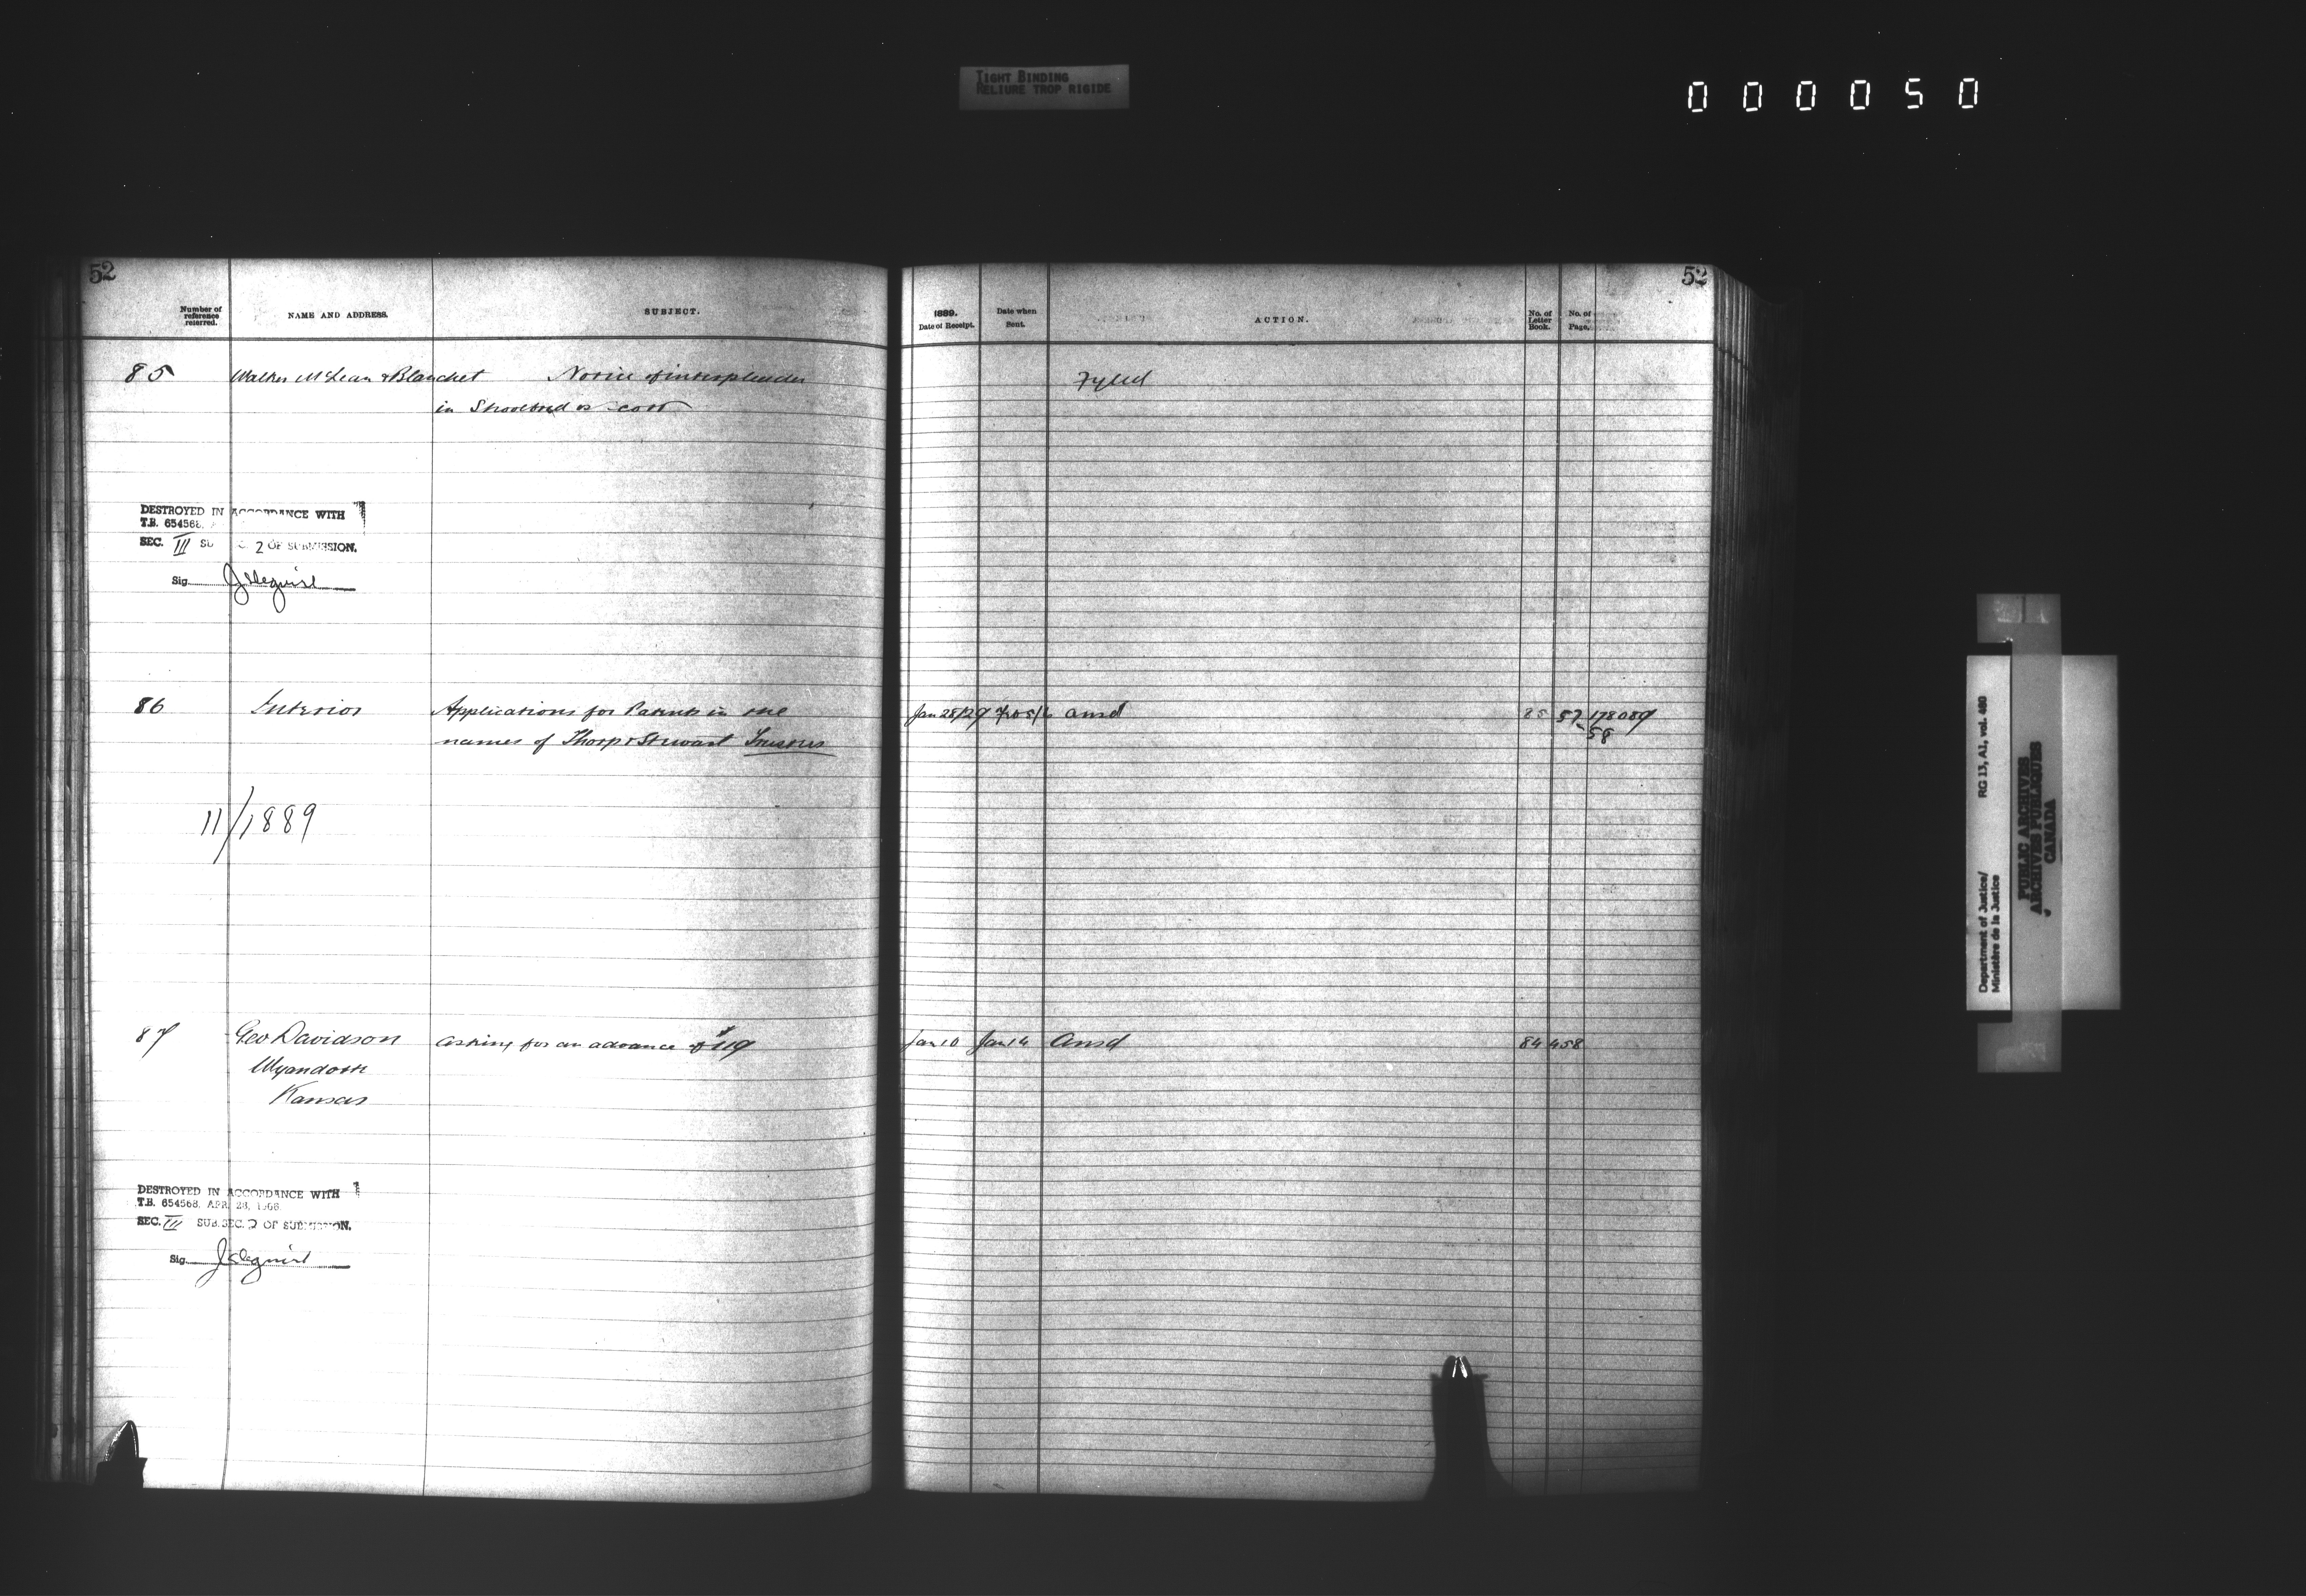 TIGHT BINDING
RELIURE TROP RIGIDE
000050
52
52
Number of reference referred.
NAME AND ADDRESS.
SUBJECT.
1889.
Date of Receipt.
Date when Sent.
ACTION.
No. of Letter Book.
No. of Page.
85 Walker McLean & Blanchet Notice of interpleader Fyled
in
DESTROYED IN ACCORDANCE WITH
T.B. 654568,
SEC. III SU C. 2 OF SUBMISSION.
Sig.
86 Interior Applications for Patents in the Jan 28/29 ansd 85 57 178089
names of Thorp & Stewart Trustees 58
11/1889
87 Geo Davidson asking for an advance of $119 Jan 10 Jan 14 Ansd 84 458
Wyandotte
Kansas
DESTROYED IN ACCORDANCE WITH
T.B. 654568, APR. 28, 1966
SEC. III SUB.SEC. 2 OF SUBMISSION.
Sig.
Department of Justice/ RG 13, A1, vol. 460
Ministère de la Justice
PUBLIC ARCHIVES
ARCHIVES PUBLIQUES
CANADA